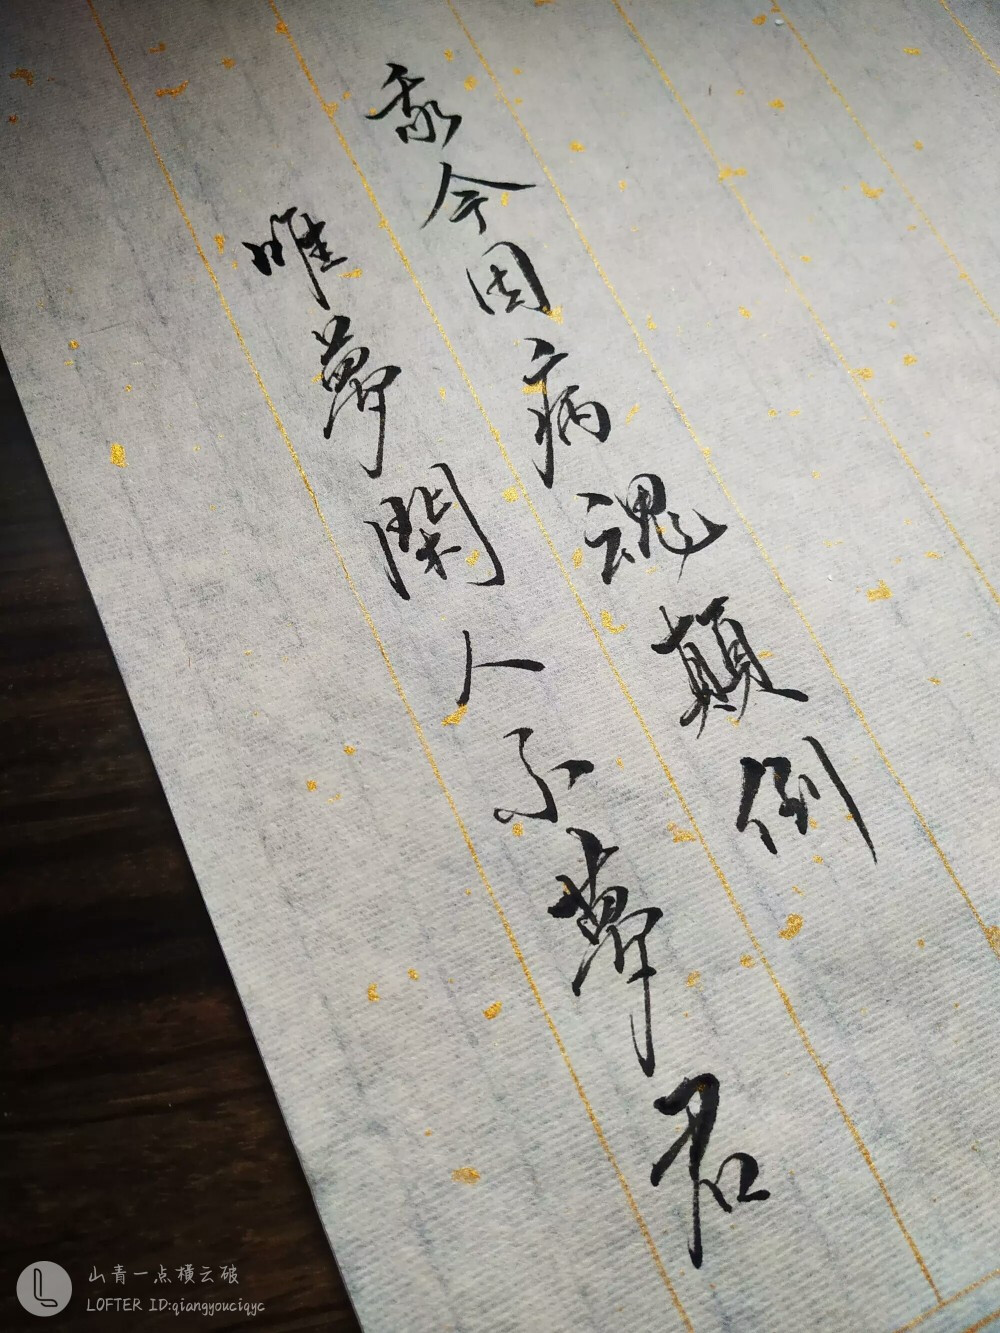 我今因病魂顛倒
唯夢閑人不夢君
山青一点横云破
LOFTER ID:qiangyouciqyc